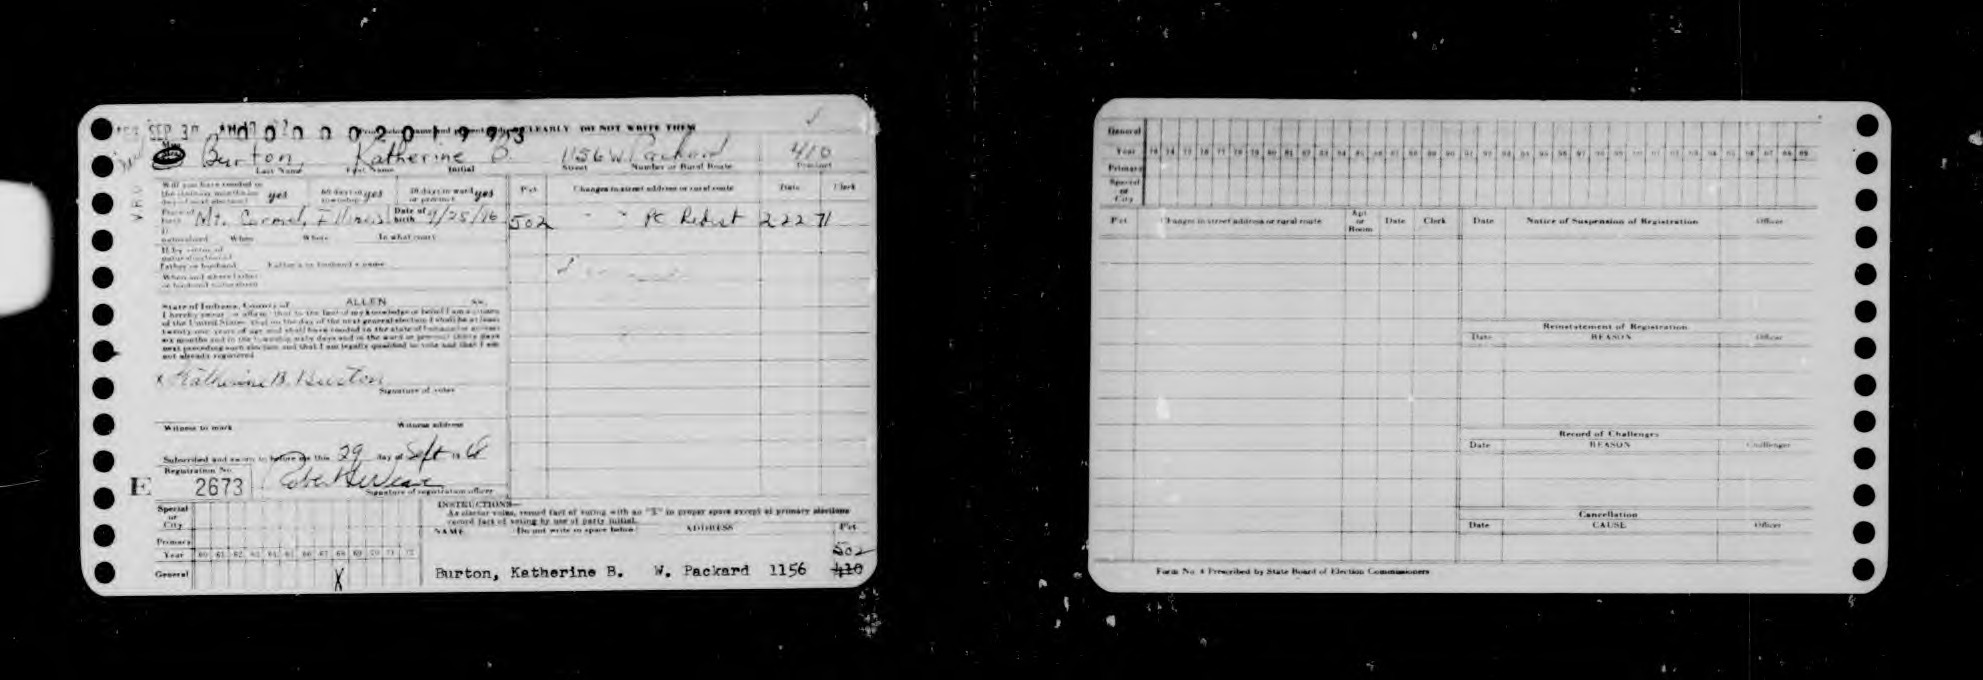 SEP 30 AM 0000020 1993
CLEARLY DO NOT WRITE THEM
Burton, Katherine B. 1156 W Packard 410
Last Name First Name Initial Street Number or Rural Route Precinct
Will you have resided in
yes 60 days in township yes 30 days in ward or precinct yes
Pct. Changes in street address or rural route Date Clerk
Place of birth Mt. Carmel, Illinois Date of birth
502 " " PC Redist 2 22 71
If naturalized When Where In what court
If by virtue of
Father or husband Father's or husband's name
When and where father
or husband naturalized
State of Indiana, County of ALLEN ss.
I hereby swear or affirm that to the best of my knowledge or belief I am a citizen
of the United States, that on the day of the next general election I shall be at least
twenty-one years of age and shall have resided in the state of Indiana
six months and in the township sixty days and in the ward or precinct thirty days
next preceding such election and that I am legally qualified to vote and that I am
not already registered
x Katherine B. Burton
Signature of voter
Witness to mark Witness address
Subscribed and sworn to before me this 29 day of Sept 19 68
Registration No.
E 2673
Signature of registration officer
Special
or
City
Primary
Year 60 61 62 63 64 65 66 67 68 69 70 71 72
General X
INSTRUCTIONS—
As elector votes, record fact of voting with an "X" in proper space except at primary elections
record fact of voting by use of party initial.
NAME Do not write in space below ADDRESS Pct.
502
Burton, Katherine B. W. Packard 1156 410
General
Year
Primary
Special
or
City
Pct. Changes in street address or rural route Apt. or Room Date Clerk Date Notice of Suspension of Registration Officer
Reinstatement of Registration
Date REASON Officer
Record of Challenges
Date REASON Challenger
Cancellation
Date CAUSE Officer
Form No. 4 Prescribed by State Board of Election Commissioners